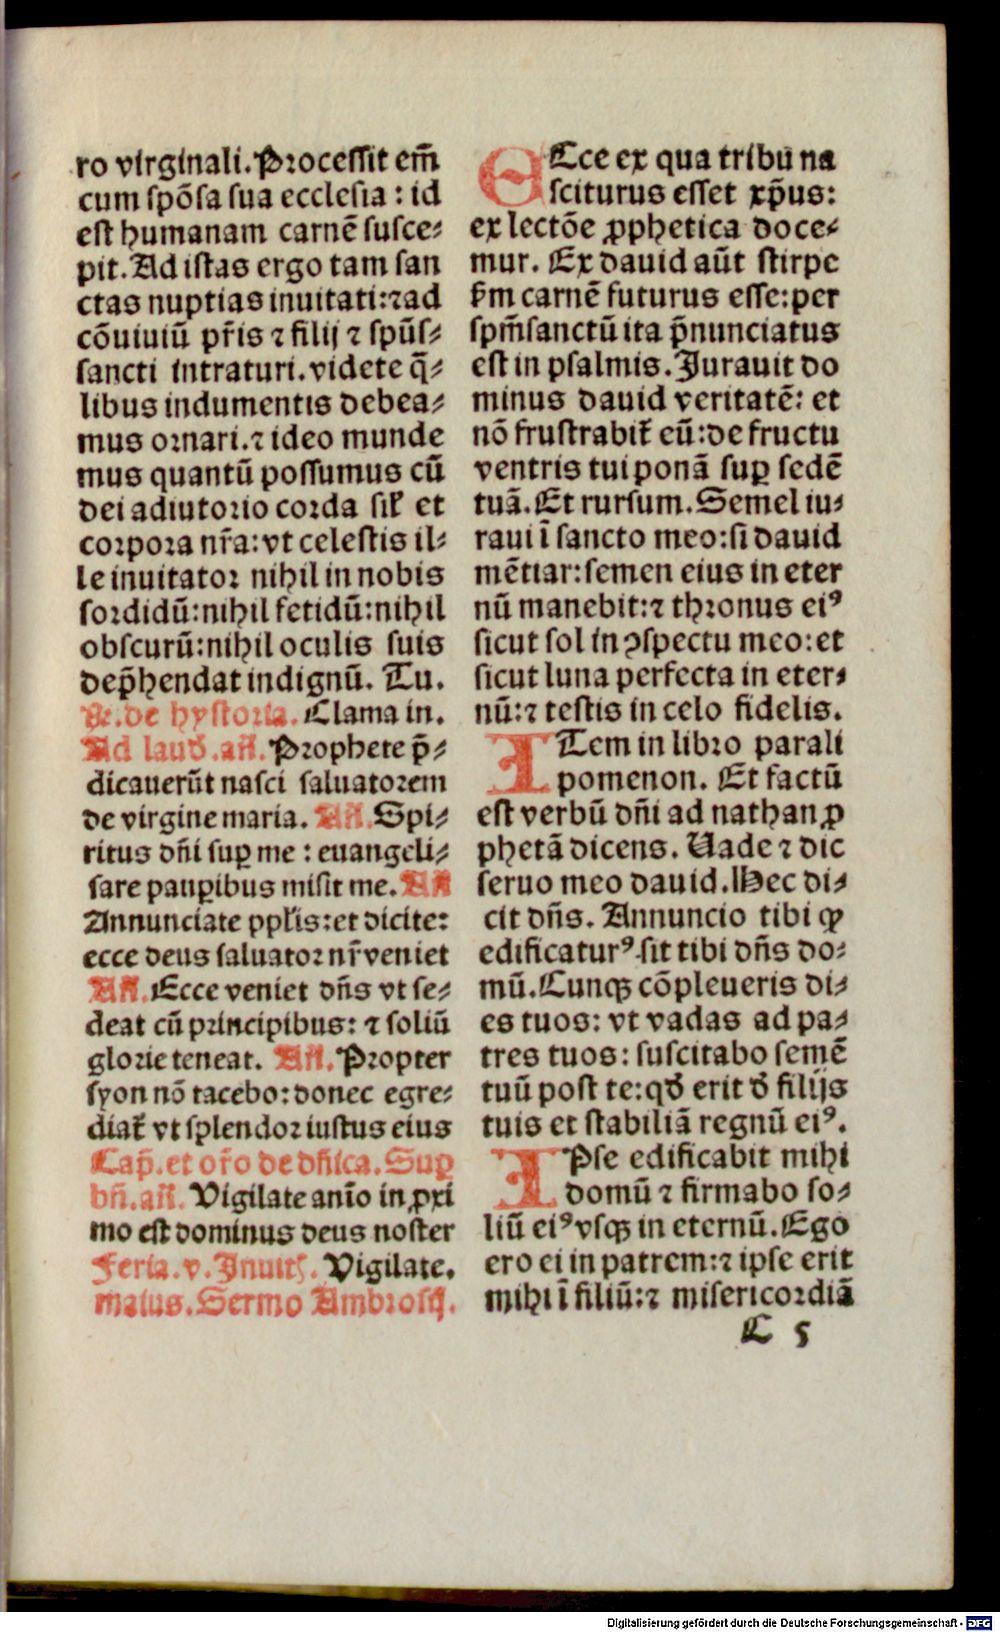 ro virginali. Processit em̄
cum spōsa sua ecclesia : id
est humanam carnē susce⸗
pit. Ad istas ergo tam san
ctas nuptias inuitati: ⁊ ad
cōuiuiū pr̄is ⁊ filij ⁊ spūs⸗
sancti intraturi. videte q̄⸗
libus indumentis debea⸗
mus ornari. ⁊ ideo munde
mus quantū possumus cū
dei adiutorio corda sil̄ et
corpora nr̄a: vt celestis il⸗
le inuitator nihil in nobis
sordidū: nihil fetidū: nihil
obscurū: nihil oculis suis
dep̄hendat indignū. Tu.
℟. de hystoria. Clama in.
Ad laud̄. an̄. Prophete p̄⸗
dicauerūt nasci saluatorem
de virgine maria. An̄. Spi⸗
ritus dn̄i suꝑ me : euangeli⸗
sare pauꝑibus misit me. An̄
Annunciate ppl̄is: et dicite:
ecce deus saluator nr̄ veniet
An̄. Ecce veniet dn̄s vt se⸗
deat cū principibus: ⁊ soliū
glorie teneat. An̄. Propter
syon nō tacebo: donec egre⸗
diat̄ vt splendor iustus eius
Cap̄. et or̄o de dn̄ica. Suꝑ
bn̄. an̄. Vigilate anīo in ꝓxi
mo est dominus deus noster
Feria. v. Inuit̄. Vigilate.
maius. Sermo Ambrosij.
ECce ex qua tribu na
sciturus esset xp̄us:
ex lectōe ꝓphetica doce⸗
mur. Ex dauid aūt stirpe
km̄ carnē futurus esse: per
spm̄sanctū ita p̄nunciatus
est in psalmis. Jurauit do
minus dauid veritatē: et
nō frustrabit̄ eū: de fructu
ventris tui ponā suꝑ sedē
tuā. Et rursum. Semel iu⸗
raui ī sancto meo: si dauid
mētiar: semen eius in eter
nū manebit: ⁊ thronus eiꝰ
sicut sol in ꝯspectu meo: et
sicut luna perfecta in eter⸗
nū: ⁊ testis in celo fidelis.
ITem in libro parali
pomenon. Et factū
est verbū dn̄i ad nathan ꝓ
phetā dicens. Uade ⁊ dic
seruo meo dauid. Hec di⸗
cit dn̄s. Annuncio tibi ꝙ
edificaturꝰ sit tibi dn̄s do⸗
mū. Cunqꝫ cōpleueris di⸗
es tuos: vt vadas ad pa⸗
tres tuos: suscitabo semē
tuū post te: qd̄ erit d̄ filijs
tuis et stabiliā regnū eiꝰ.
IPse edificabit mihi
domū ⁊ firmabo so⸗
liū eiꝰ vsqꝫ in eternū. Ego
ero ei in patrem: ⁊ ipse erit
mihi ī filiū: ⁊ misericordiā
C 5
Digitalisierung gefördert durch die Deutsche Forschungsgemeinschaft - DFG